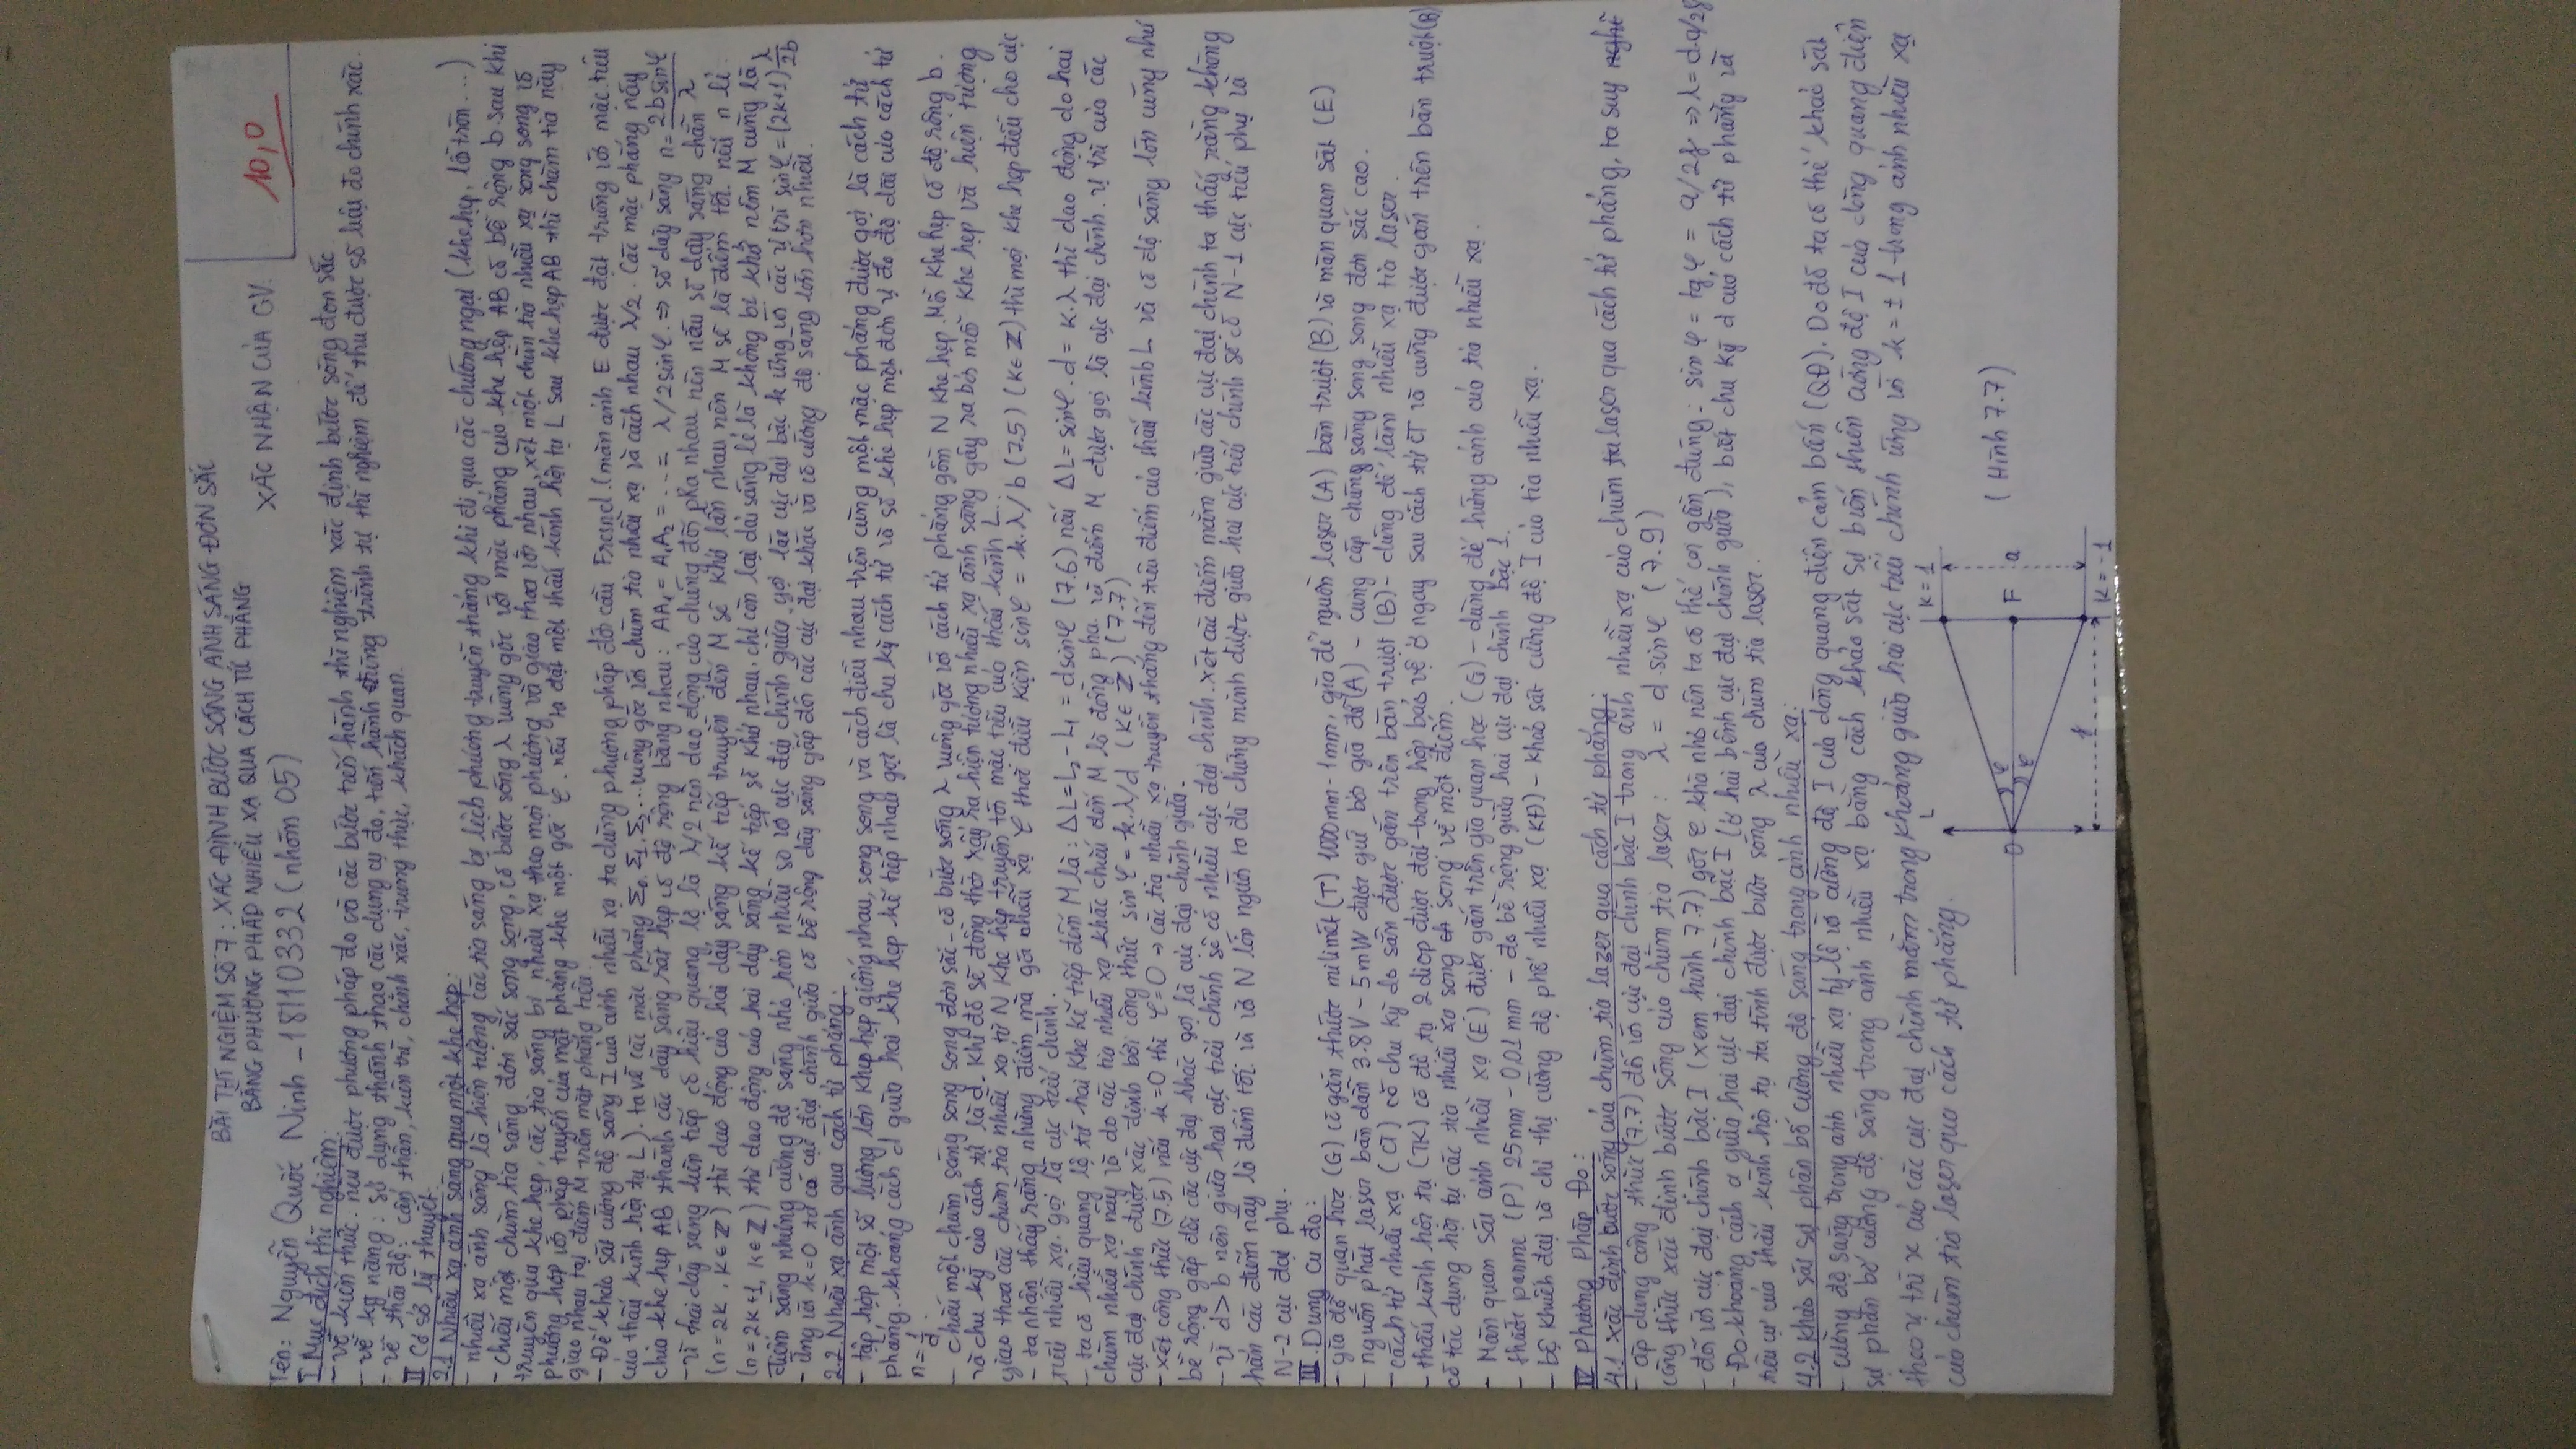 BÀI THÍ NGIỆM SỐ 7: XÁC ĐỊNH BƯỚC SÓNG ÁNH SÁNG ĐƠN SẮC
BẰNG PHƯƠNG PHÁP NHIỄU XẠ QUA CÁCH TỬ PHẲNG
XÁC NHẬN CỦA GV.
10,0
Tên: Nguyễn Quốc Ninh - 18110332 (nhóm 05)
I Mục đích thí nghiệm:
- về kiến thức: nêu được phương pháp đo và các bước tiến hành thí nghiệm xác định bước sóng đơn sắc.
- về kỹ năng: sử dụng thành thạo các dụng cụ đo, tiến hành đúng trình tự thí nghiệm để thu được số liệu đo chính xác.
- về thái độ: cẩn thận, kiên trì, chính xác, trung thực, khách quan.
II Cơ sở lý thuyết:
2.1 Nhiễu xạ ánh sáng qua một khe hẹp:
- nhiễu xạ ánh sáng là hiện tượng các tia sáng bị lệch phương truyền thẳng khi đi qua các chướng ngại (khe hẹp, lỗ tròn ...)
- chiếu một chùm tia sáng đơn sắc song song, có bước sóng λ vuông góc với mặc phẳng của khe hẹp AB có bề rộng b. sau khi
truyền qua khe hẹp, các tia sáng bị nhiễu xạ theo mọi phương và giao thoa với nhau, xét một chùm tia nhiễu xạ song song có
phương hợp với pháp tuyến của mặt phẳng khe một góc φ. nếu ta đặt một thấu kính hội tụ L sau khe hẹp AB thì chùm tia này
giao nhau tại điểm M trên mặt phẳng tiêu.
- Để khảo sát cường độ sáng I của ảnh nhiễu xạ ta dùng phương pháp đới cầu Fresnel. (màn ảnh E được đặt trùng với mặc tiêu
của thấu kính hội tụ L). ta vẽ các mặc phẳng Σ0, Σ1, Σ2 ... vuông góc với chùm tia nhiễu xạ và cách nhau λ/2. Các mặc phẳng này
chia khe hẹp AB thành các dãy sáng rất hẹp có độ rộng bằng nhau: AA1 = A1A2 = ... = λ/2sinφ. ⇒ số dãy sáng n = 2bsinφ/λ
- vì hai dãy sáng liên tiếp có hiệu quang lộ là λ/2 nên dao động của chúng đối pha nhau nên nếu số dãy sáng chẵn
(n = 2k, k ∈ Z) thì dao động của hai dãy sáng kế tiếp truyền đến M sẽ khử lẫn nhau nên M sẽ là điểm tối. nếu n lẻ
(n = 2k+1, k ∈ Z) thì dao động của hai dãy sáng kế tiếp sẽ khử nhau, chỉ còn lại dải sáng lẻ là không bị khử nên M cũng là
điểm sáng nhưng cường độ sáng nhỏ hơn nhiều so với cực đại chính giữa gọi là cực đại bậc k ứng với các vị trí sinφ = (2k+1) λ/2b
- ứng với k=0 ta có cực đại chính giữa có bề rộng dãy sáng gấp đôi các cực đại khác và có cường độ sáng lớn hơn nhiều.
2.2. Nhiễu xạ ảnh qua cách tử phẳng:
- tập hợp một số lượng lớn khe hẹp giống nhau, song song và cách điều nhau trên cùng một mặc phẳng được gọi là cách tử
phẳng. khoảng cách d giữa hai khe hẹp kế tiếp nhau gọi là chu kỳ cách tử và số khe hẹp một đơn vị đo độ dài của cách tử
n = 1/d.
- chiếu một chùm sáng song song đơn sắc - có bước sóng λ vuông góc với cách tử phẳng gồm N khe hẹp. Mỗi khe hẹp có độ rộng b.
và chu kỳ của cách tử là d. Khi đó sẽ đồng thời xảy ra hiện tượng nhiễu xạ ánh sáng gây ra bởi mỗi khe hẹp và hiện tượng
giao thoa các chùm tia nhiễu xạ từ N khe hẹp truyền tới mặc tiêu của thấu kính L.
- ta nhận thấy rằng những điểm mà góc nhiễu xạ φ thoả điều kiện sinφ = k.λ/b (7.5) (k ∈ Z) thì mọi khe hẹp điều cho cực
tiểu nhiễu xạ. gọi là cực tiểu chính.
- ta có hiệu quang lộ từ hai khe kế tiếp đến M là: ΔL = L2 - L1 = dsinφ (7.6) nếu ΔL = sinφ.d = k.λ thì dao động do hai
chùm nhiễu xạ này và do các tia nhiễu xạ khác chiếu đến M là đồng pha. và điểm M được gọi là cực đại chính. vị trí của các
cực đại chính được xác định bởi công thức sinφ = k.λ/d (k ∈ Z) (7.7)
- xét công thức (7.5) nếu k=0 thì φ=0 → các tia nhiễu xạ truyền thẳng đến tiêu điểm của thấu kính L và có độ sáng lớn cũng như
bề rộng gấp đôi các cực đại khác gọi là cực đại chính giữa.
- vì d > b nên giữa hai cực tiểu chính sẽ có nhiều cực đại chính. xét các điểm nằm giữa các cực đại chính ta thấy rằng không
hẳn các điểm này là điểm tối. và với N lớn người ta đã chứng minh được giữa hai cực tiểu chính sẽ có N-1 cực tiểu phụ và
N-2 cực đại phụ.
III. Dụng cụ đo:
- giá đỡ quang học (G) có gắn thước milimét (T) 1000mm - 1mm, giá để nguồn laser (A) bàn trượt (B) và màn quan sát (E)
- nguồn phát laser bán dẫn 3.8V - 5mW được giữ bởi giá đỡ (A) - cung cấp chùm sáng song song đơn sắc cao.
- cách tử nhiễu xạ (CT) có chu kỳ đo sẵn được gắn trên bàn trượt (B) - dùng để làm nhiễu xạ tia laser.
- thấu kính hội tụ (TK) có độ tụ 2 diop được đặt trong hộp bảo vệ ở ngay sau cách tử CT và cũng được gắn trên bàn trượt (B)
có tác dụng hội tụ các tia nhiễu xạ song song về một điểm.
- Màn quan sát ảnh nhiễu xạ (E) được gắn trên giá quan học (G) - dùng để hứng ảnh của tia nhiễu xạ.
- thước panme (P) 25mm - 0,01mm - đo bề rộng giữa hai cực đại chính bậc 1.
- bộ khuếch đại và chỉ thị cường độ phổ nhiễu xạ (KĐ) - khảo sát cường độ I của tia nhiễu xạ.
IV Phương Pháp Đo:
4.1 xác định bước sóng của chùm tia lazer qua cách tử phẳng:
- áp dụng công thức (7.7) đối với cực đại chính bậc I trong ảnh nhiễu xạ của chùm tia laser qua cách tử phẳng, ta suy
công thức xác định bước sóng của chùm tia laser: λ = d.sinφ (7.9)
- đối với cực đại chính bậc I (xem hình 7.7) góc φ khá nhỏ nên ta có thể coi gần đúng: sinφ = tgφ = a/2f ⇒ λ = d.a/2f
- Đo khoảng cách a giữa hai cực đại chính bậc I (ở hai bênh cực đại chính giữa), biết chu kỳ d của cách tử phẳng và
tiêu cự của thấu kính hội tụ ta tính được bước sóng λ của chùm tia laser.
4.2 khảo sát sự phân bố cường độ sáng trong ảnh nhiễu xạ:
- cường độ sáng trong ảnh nhiễu xạ tỷ lệ với cường độ I của dòng quang điện cảm biến (QĐ). Do đó ta có thể khảo sát
sự phân bố cường độ sáng trong ảnh nhiễu xạ bằng cách khảo sát sự biến thiên cường độ I của dòng quang điện
theo vị trí x của các cực đại chính nằm trong khoảng giữa hai cực tiểu chính ứng với k = ± 1 trong ảnh nhiễu xạ
của chùm tia laser qua cách tử phẳng.
L
K = 1
O
φ
φ
F
a
(Hình 7.7)
f
K = -1